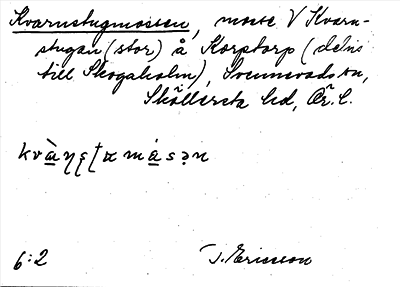 Kvarnstugmossen, mosse V Kvarn-
stugan (stor) å Korptorp (delvis
till Skogaholm), Svennevads sn,
Sköllersta hd, Ör. l.
kvàṇṣṭɷmásən
6:2 J. Ericsson